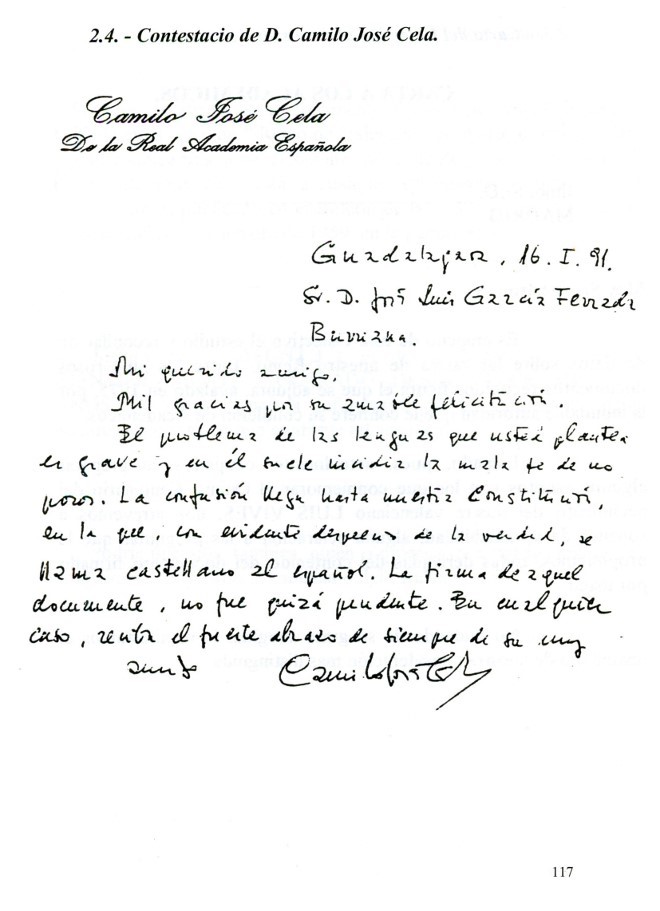 2.4. - Contestacio de D. Camilo José Cela.
Camilo José Cela
De la Real Academia Española
Guadalajara, 16. I. 91.
Sr. D. José Luis García Ferrada
Burriana.
Mi querido amigo,
Mil gracias por su amable felicitación.
El problema de las lenguas que usted plantea
es grave y en él suele incidir la mala fe de no
pocos. La confusión llega hasta nuestra Constitución,
en la que, con evidente desprecio de la verdad, se
llama castellano al español. La firma de aquel
documento, no fue quizá prudente. En cualquier
caso, reciba el fuerte abrazo de siempre de su muy
amigo Camilo José Cela
117